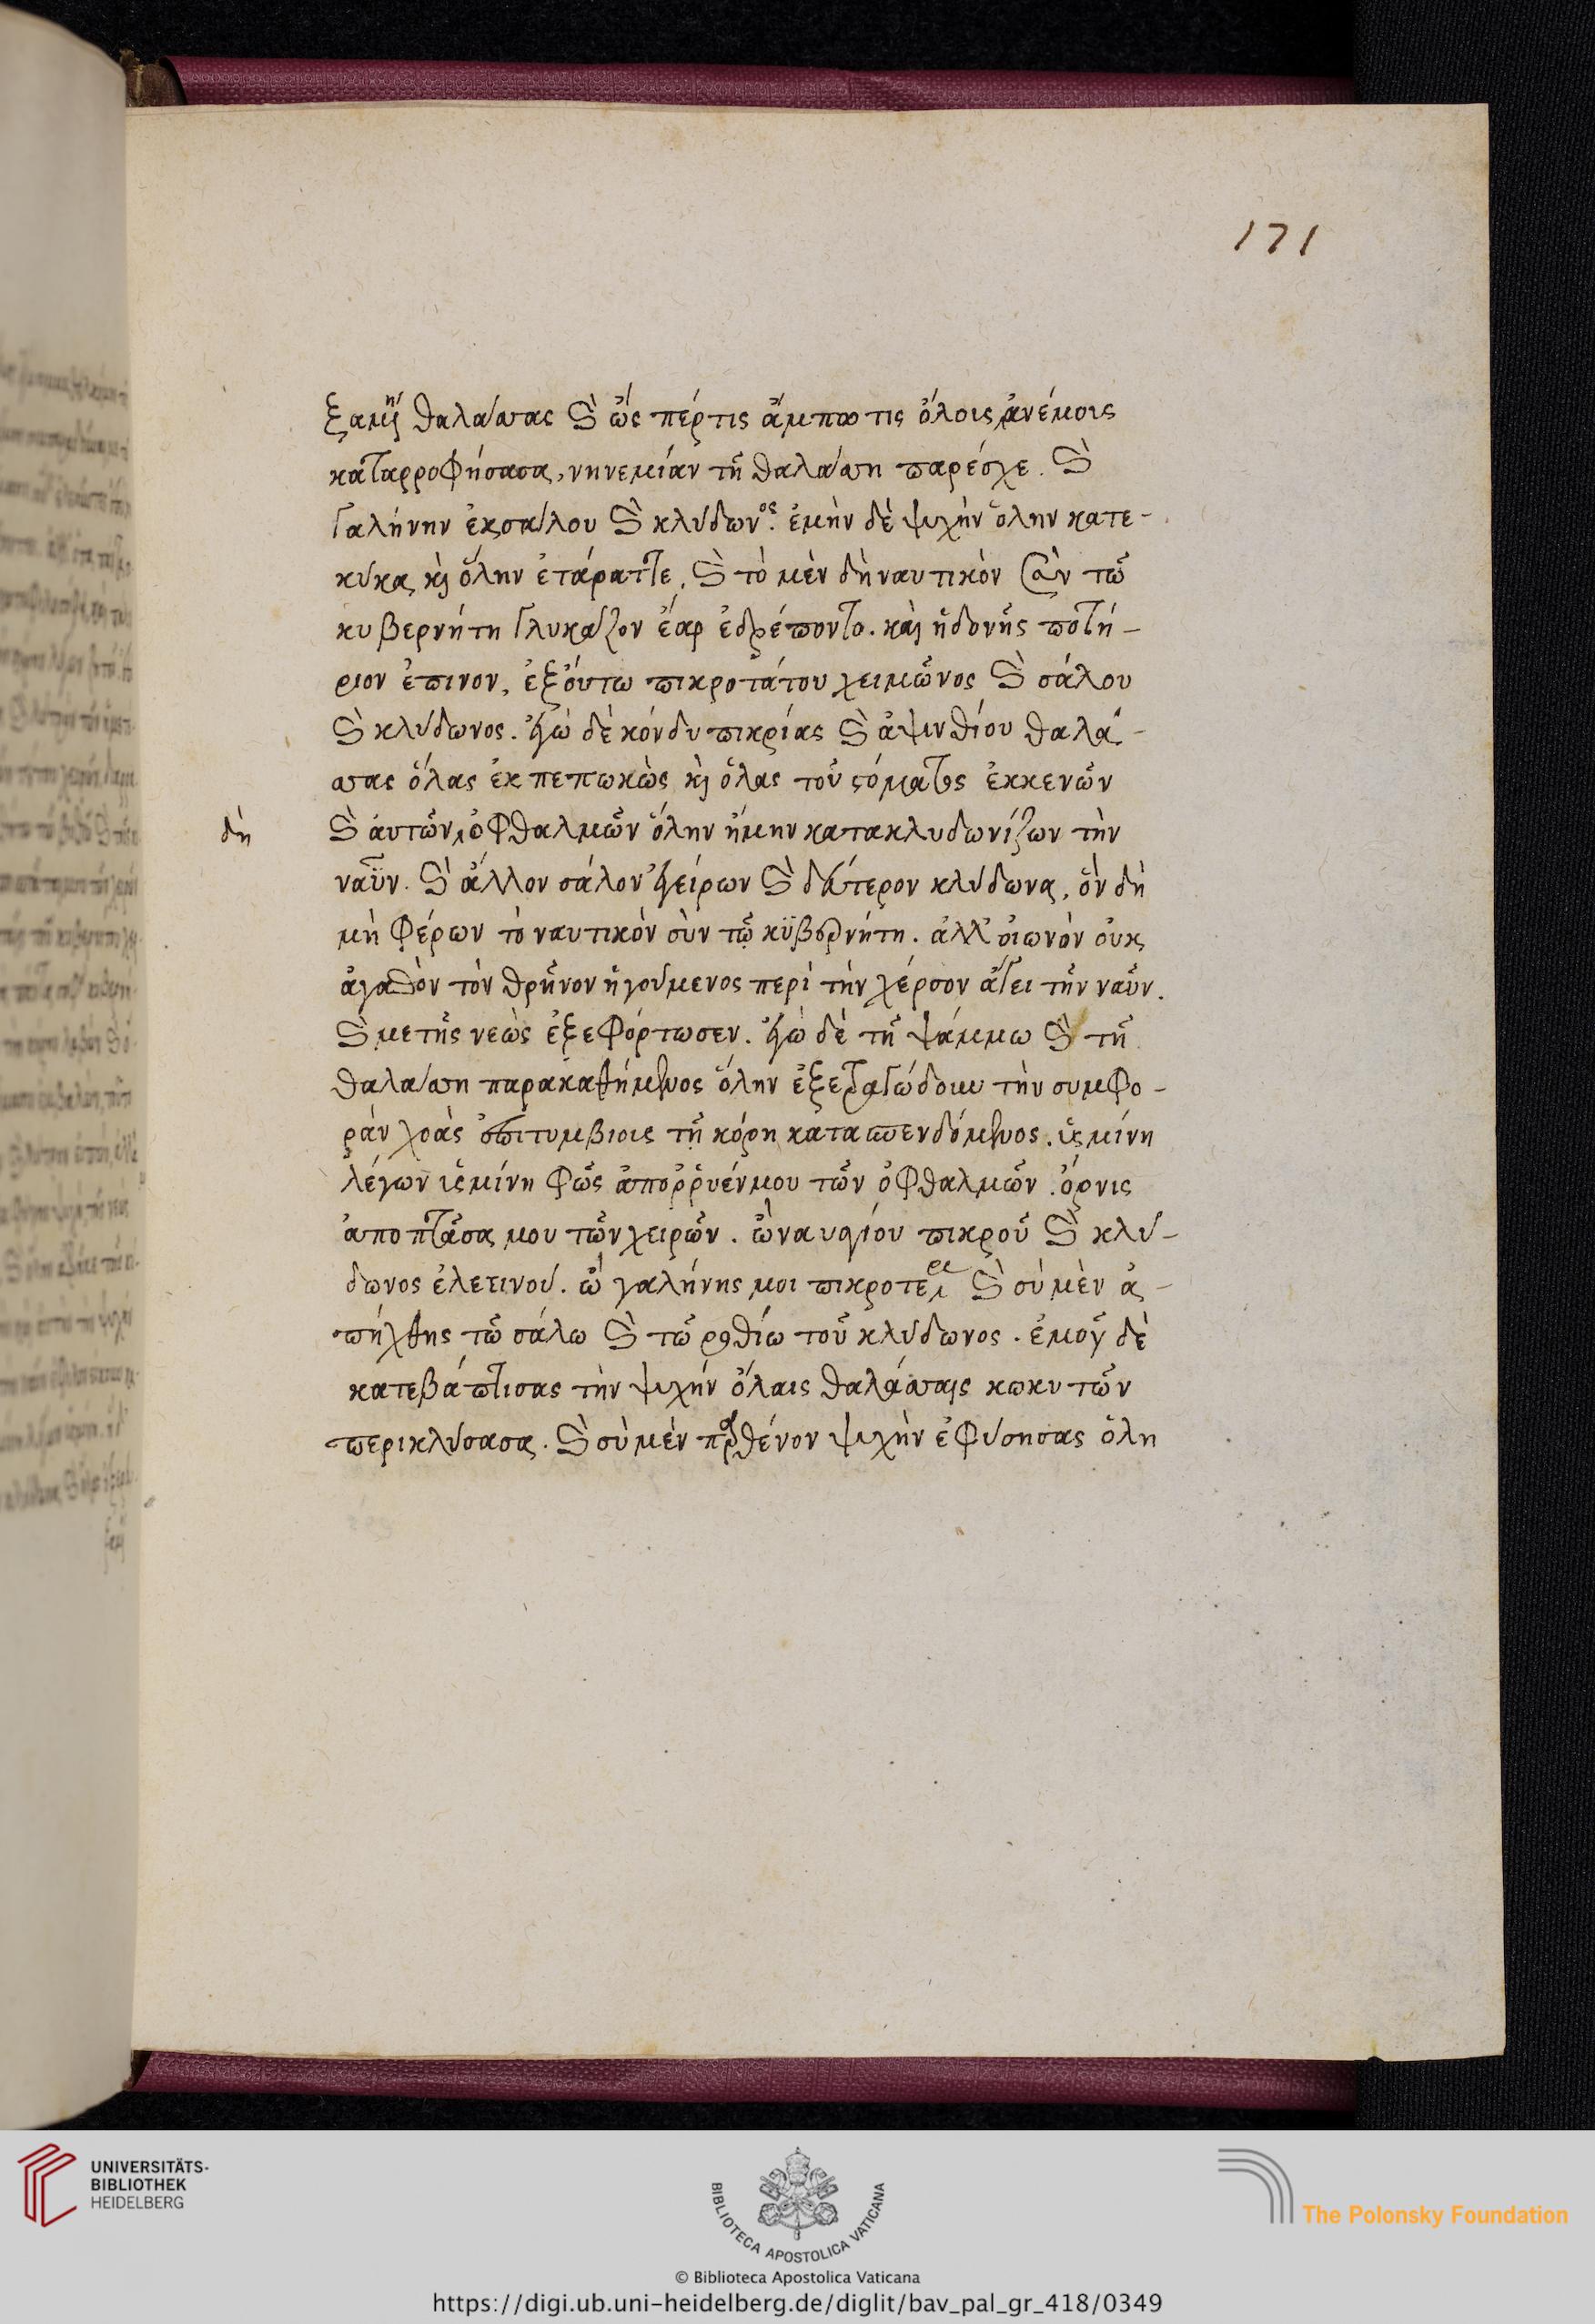 171
ξαμένη θαλάσσας καὶ ὥς πέρ τις ἄμπωτις ὅλοις ἀνέμοις
καταρροφήσασα, νηνεμίαν τῆ θαλάσση παρέσχε. καὶ
γαλήνην ἐκ σάλου καὶ κλύδωνος. ἐμὴν δὲ ψυχὴν ὅλην κατε-
κύκα καὶ ὅλην ἐτάραττε. καὶ τὸ μὲν δὴ ναυτικὸν σὺν τῶ
κυβερνήτη γλυκάζον ἔαρ ἐδρέποντο. καὶ ἡδονῆς ποτή-
ριον ἔπινον, ἐξ οὕτω πικροτάτου χειμῶνος καὶ σάλου
καὶ κλύδωνος. ἐγὼ δὲ κόνδυ πικρίας καὶ ἀψινθίου θαλά-
σσας ὅλας ἐκπεπωκὼς καὶ ὅλας τοῦ στόματος ἐκκενῶν
δὴ
καὶ αυτῶν ὀφθαλμῶν ὅλην ἤμην κατακλυδωνίζων τὴν
ναῦν. καὶ ἄλλον σάλον ἐγείρων καὶ δεύτερον κλύδωνα, ὃν δὴ
μὴ φέρων τὸ ναυτικὸν σὺν τῶ κυβερνήτη. ἀλλ' οἰωνὸν οὐκ
ἀγαθὸν τὸν θρῆνον ἡγούμενος περὶ τὴν χέρσον ἄγει τὴν ναῦν.
καὶ με τῆς νεὼς ἐξεφόρτωσεν. ἐγὼ δὲ τῆ ψάμμω καὶ τῆ
θαλάσση παρακαθήμενος ὅλην ἐξετραγώδουν τὴν συμφο-
ρὰν χοὰς ἐπιτυμβίοις τῆ κόρη κατασπενδόμενος. ὑσμίνη
λέγων ὑσμίνη φῶς ἀπορρυέν μου τῶν ὀφθαλμῶν. ὄρνις
ἀποπτᾶσα μου τῶν χειρῶν. ὢ ναυαγίου πικροῦ καὶ κλύ-
δωνος ἐλεεινού. ὢ γαλήνης μοι πικροτέρα καὶ σὺ μὲν ἀ-
πήχθης τῶ σάλω καὶ τῶ ροθίω τοῦ κλύδωνος. ἐμοῦ δὲ
κατεβάπτισας τὴν ψυχὴν ὅλαις θαλάσσαις κωκυτῶν
περικλύσασα. καὶ σὺ μὲν παρθένον ψυχὴν ἐφύσησας ὅλη
UNIVERSITÄTS-
BIBLIOTHEK
HEIDELBERG
BIBLIOTECA APOSTOLICA VATICANA
The Polonsky Foundation
© Biblioteca Apostolica Vaticana
https://digi.ub.uni-heidelberg.de/diglit/bav_pal_gr_418/0349